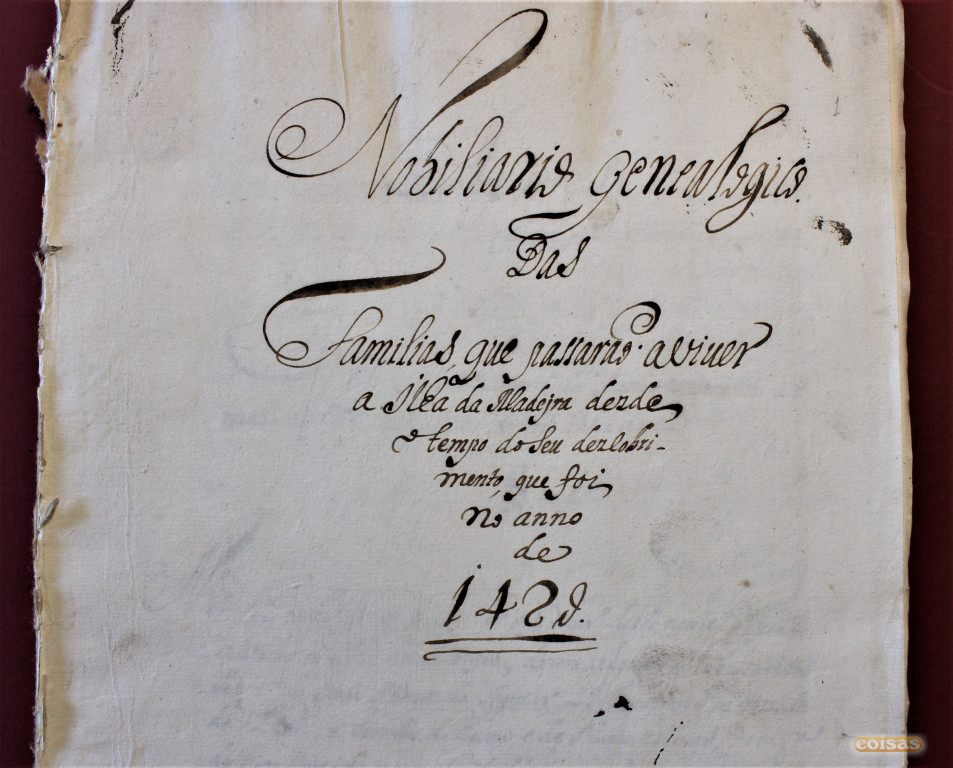 Nobiliario genealogico
Das
Familias, que passarão a viuer
a Ilha da Madejra dezde
o tempo do seu dezcobri-
mento, que foi
No anno
de
1420.
coisas